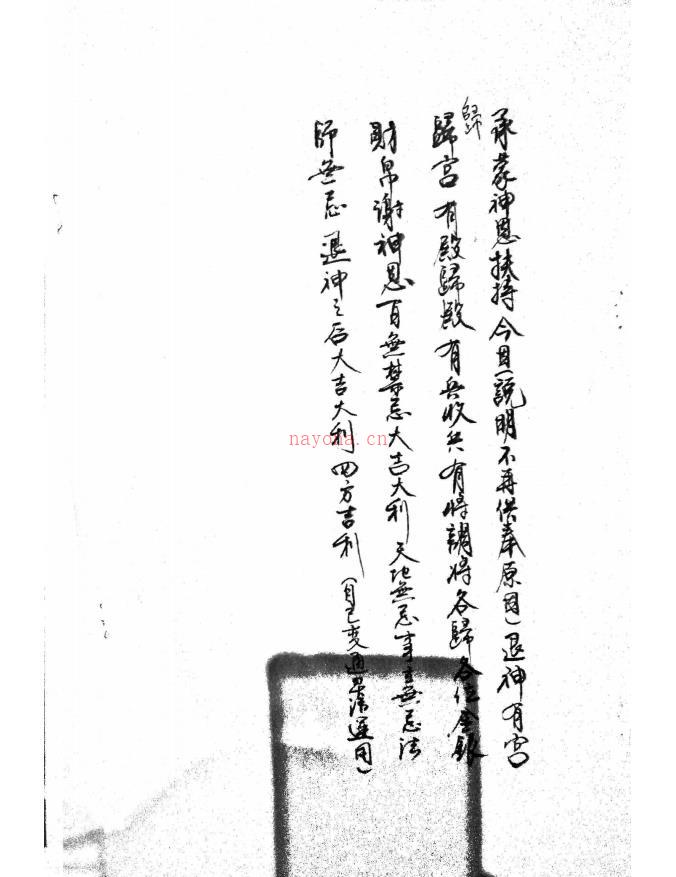 承蒙神恩扶持今日(說明不再供奉原因)退神有宮
歸
歸宮有殿歸殿有兵收兵有將調將各歸各位金銀
財帛謝神恩百無禁忌大吉大利天地無忌事主無忌法
師無忌退神之后大吉大利四方吉利(自己变通灵活運用)
nayona.cn